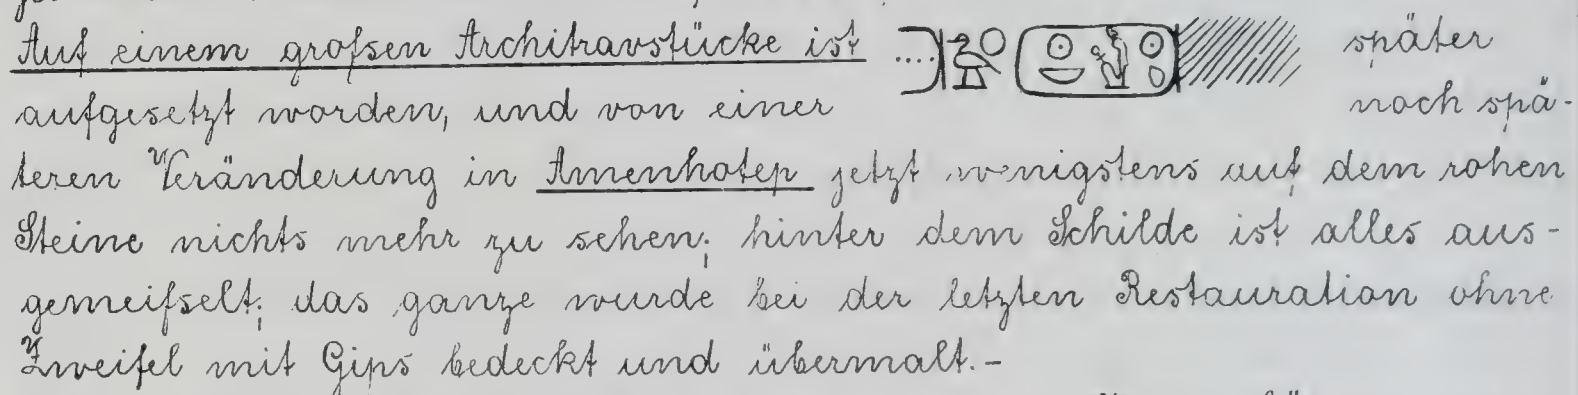 Auf einem groſsen Architravstücke ist später
aufgesetzt worden, und von einer noch spä-
teren Veränderung in Amenhotep jetzt wenigstens auf dem rohen
Steine nichts mehr zu sehen; hinter dem Schilde ist alles aus-
gemeiſselt; das ganze wurde bei der letzten Restauration ohne
Zweifel mit Gips bedeckt und übermalt.–